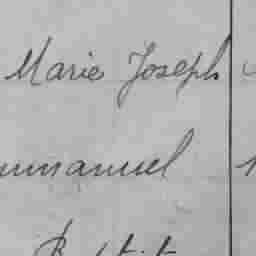 Marie Joseph
mmanuel